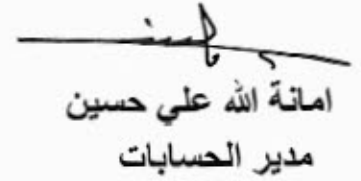 امانة الله علي حسين
مدير الحسابات